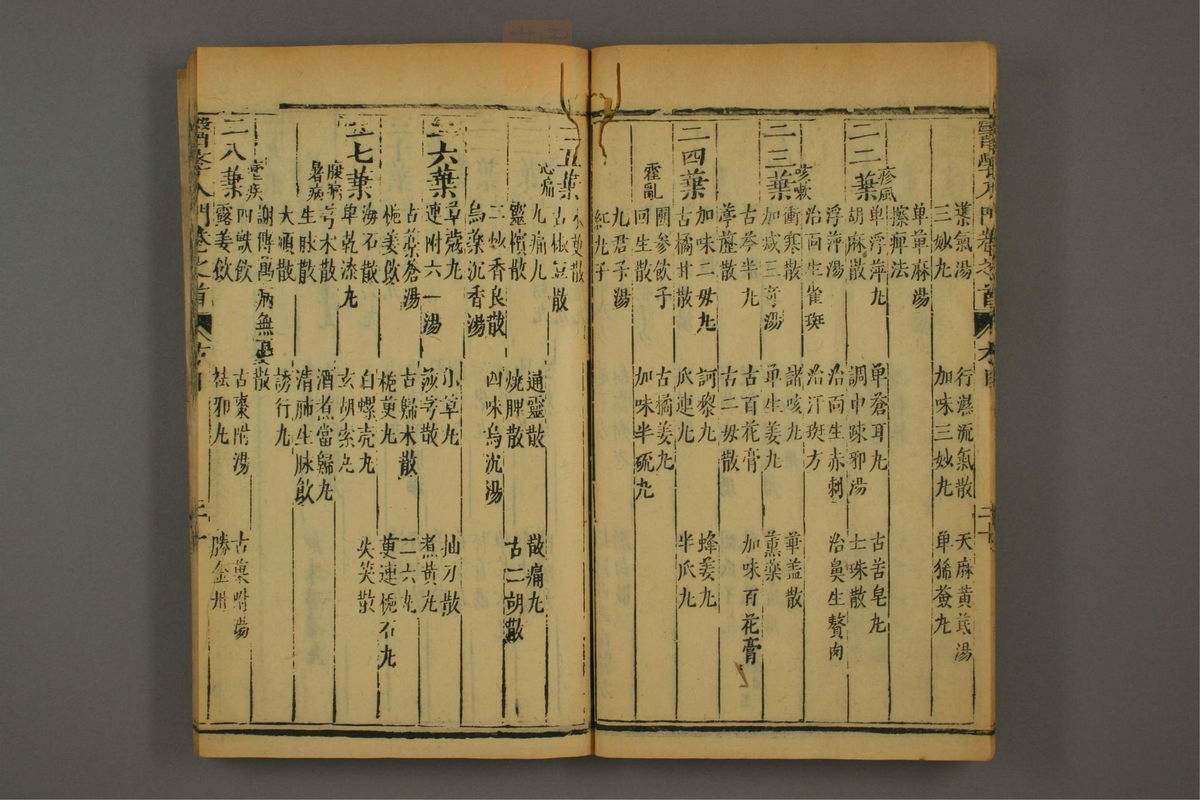 三妙丸 加味三妙丸 單豨薟丸
單萆麻湯
擦痺法
疹風
二二葉 單浮萍丸 單蒼耳丸 古苦皂丸
胡麻散 調中疎邪湯 士珠散
浮萍湯 治面生赤刺 治鼻生贅肉
治面生雀斑 治汗斑方
咳嗽
二三葉 衝寒散 諸咳丸 華蓋散
加減三奇湯 單生姜丸 薰藥
古芩半丸 古百花膏 加味百花膏
葶藶散 古二母散
二四葉 加味二母丸 訶黎丸 蜂姜丸
古橘甘散 瓜連丸 半瓜丸
團參飲子 古橘姜丸
霍亂 回生散 加味半硫丸
九君子湯
紅丸子
心痛
二五葉 古椒豆散
九痛丸 通靈散 散痛丸
靈檳散 燒脾散 古二胡散
二炒香良散 四味烏沉湯
烏藥沉香湯
二六葉 草蔻丸 小草丸 抽刀散
連附六一湯 莎芎散 煮黃丸
古藥蒼湯 古歸术散 二六丸
梔姜飲 梔萸丸 萸連梔石丸
海石散 白螺壳丸 失笑散
二七葉 單乾漆丸 玄胡索丸
腹痛 芎术散 酒煮當歸丸
暑病 生脉散 清肺生脉飲
大順散 誘行丸
謝傳萬病無憂散
瘧疾 四獸飲 古棗附湯 古菓附湯
二八葉 露姜飲 祛邪丸 勝金丹
醫學入門卷之首